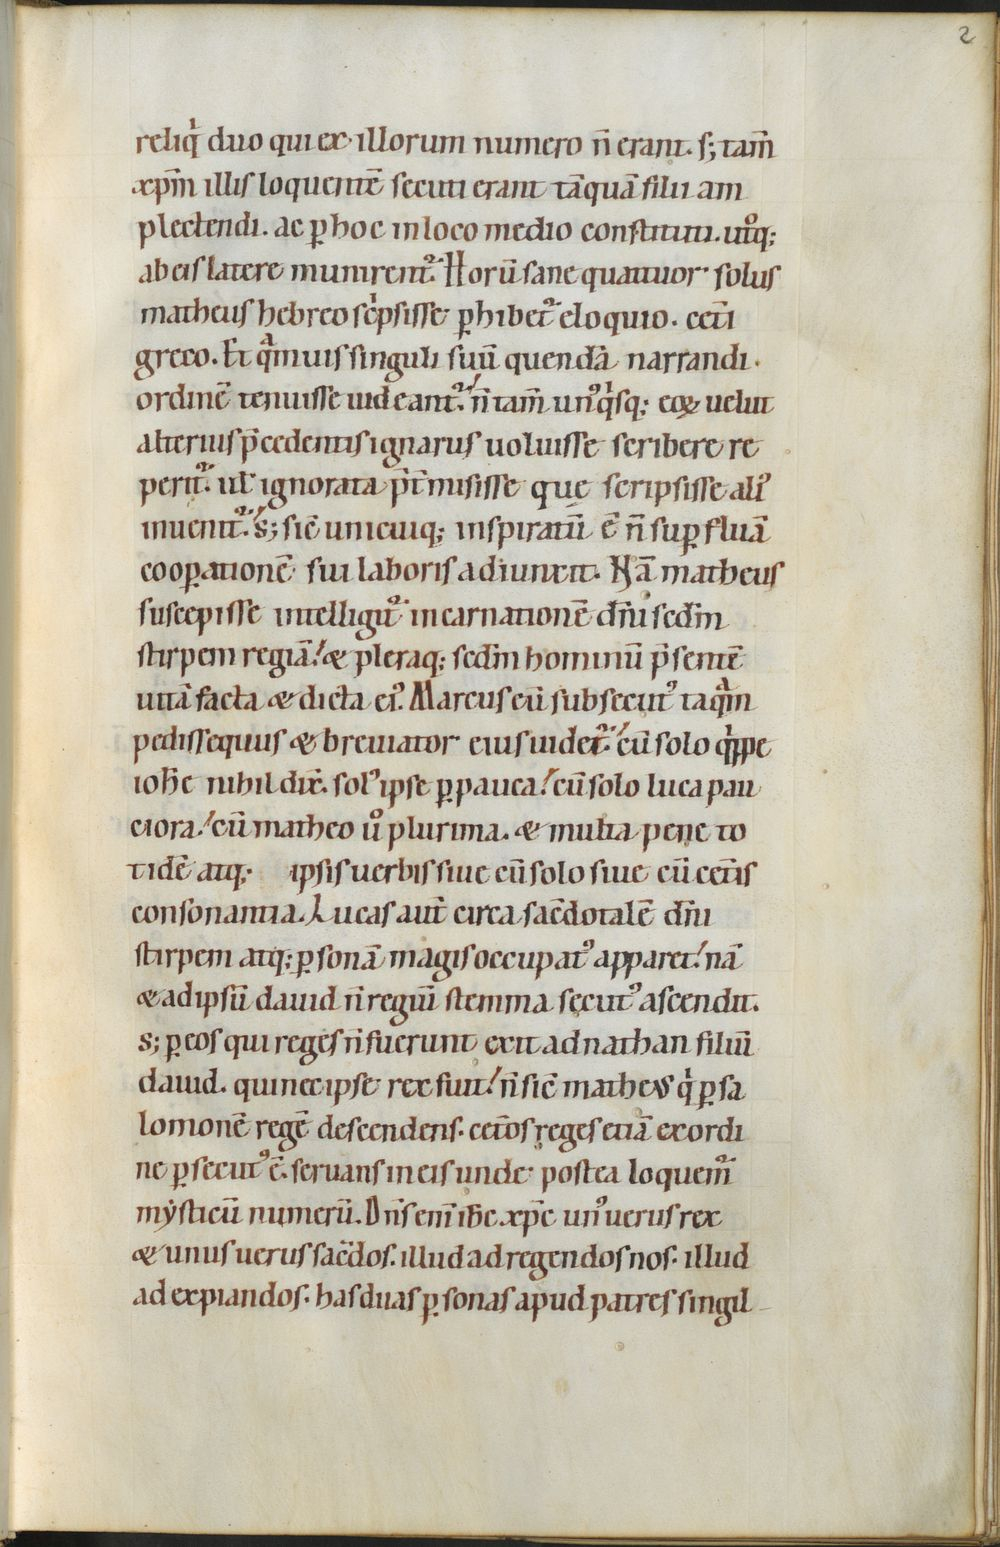 2
reliq̇ duo qui ex illorum numero n̄ erant. s; tam̄
xp̄m illis loquentē secuti erant tāquā filii am
plectendi. ac ꝑ hoc in loco medio constituti. utͦq;
ab eis latere munirent᷑. Horū sane quattuor solus
matheus hebreo scͥpsisse ꝑhibet᷑ eloquio. cet̄i
greco. Et qͣmuis singuli suū quendā narrandi
ordinē tenuisse uideant᷑. n̄ tam̄ unꝰqͥsq; eoꝝ uelut
alterius p̄cedentis ignarus uoluisse scribere re
perit᷑. ul̄ ignorata p̄t̄misisse que scripsisse aliꝰ
inuenit᷑. s; sic̄ unicuiq; inspiratū ē n̄ suꝑfluā
cooꝑationē sui laboris adiunxit. Nā matheus
suscepisse intelligit᷑ incarnationē dn̄i scd̄m
stirpem regiā. & pleraq; scd̄m hominū p̄sentē
uitā facta & dicta eiꝰ. Marcus eū subsecutꝰ taqͣm
pedissequus & breuiator eius uidet᷑. cū solo qͥppe
ioh̄e nihil dix̄. solꝰ ipse ꝑpauca. cū solo luca pau
ciora. cū matheo ůͦ plurima. & multa pene to
tidē atq; ipsis uerbis siue cū solo siue cū cet̄is
consonantia. Lucas aut̄ circa sac̄dotalē dn̄i
stirpem atq; ꝑsonā magis occupatꝰ apparet. nā
& ad ipsū dauid n̄ regiū stemma secutꝰ ascendit.
s; ꝑ eos qui reges n̄ fuerunt exit ad nathan filiū
dauid. qui nec ipse rex fuit. n̄ sic̄ matheus qͥ ꝑ sa
lomonē regē descendens. cet̄os reges etiā ex ordi
ne ꝑsecutꝰ ē. seruans in eis unde postea loquem᷑
mẏsticū numerū. Dn̄s eni̅ ih̄c xp̄c unꝰ uerus rex
& unus uerus sac̄dos. illud ad regendos nos. illud
ad expiandos. has duas ꝑsonas apud patres singil